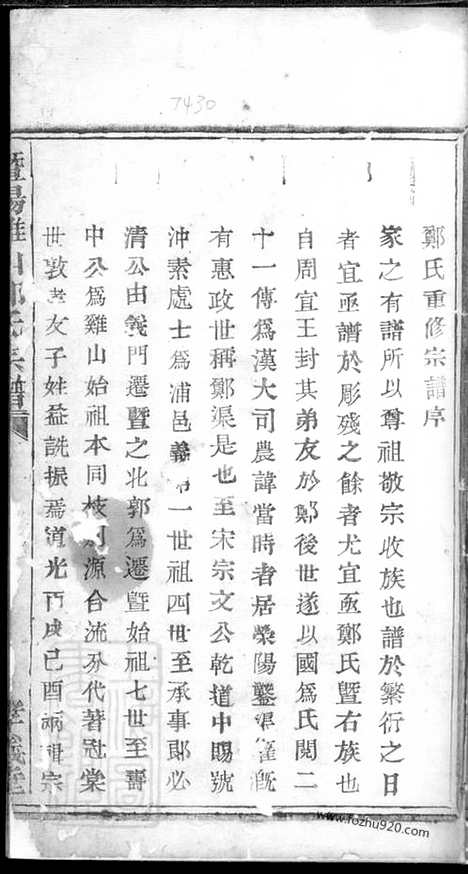 7430
鄭氏重修宗譜序
家之有譜所以尊祖敬宗收族也譜於繁衍之日
者宜亟譜於彫殘之餘者尤宜亟鄭氏暨右族也
自周宣王封其弟友於鄭後世遂以國爲氏閱二
十一傳爲漢大司農諱當時者居滎陽鑿渠灌漑
有惠政世稱鄭渠是也至宋宗文公乾道中賜號
沖素處士爲浦邑義門一世祖四世至承事郎必
清公由義門遷暨之北郭爲遷暨始祖七世至壽
中公爲雞山始祖本同枝別源合流分代著冠棠
世敦孝友子姓益詵振焉道光丙戌己酉兩稍宗
暨陽雞山鄭氏宗譜
孝義堂
www.fozhu920.com